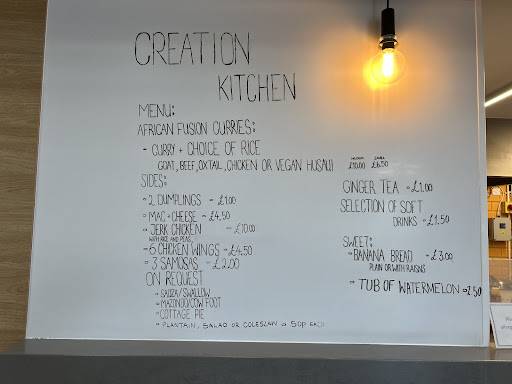 CREATION
KITCHEN
MENU:
AFRICAN FUSION CURRIES:
- CURRY + CHOICE OF RICE
GOAT, BEEF, OXTAIL, CHICKEN OR VEGAN HUSALI) £10.00 £6.50
SIDES:
- 2 DUMPLINGS - £1.00
- MAC + CHEESE - £4.50
- JERK CHICKEN - £10.00
WITH RICE AND PEAS
- 6 CHICKEN WINGS - £4.50
- 3 SAMOSAS - £2.00
ON REQUEST
- SADZA/SWALLOW
- MAZONDO/COW FOOT
- COTTAGE PIE
- PLANTAIN, SALAD OR COLESLAW @ 50p EACH
GINGER TEA - £1.00
SELECTION OF SOFT
DRINKS - £1.50
SWEET:
- BANANA BREAD - £3.00
PLAIN OR WITH RAISINS
- TUB OF WATERMELON - 2.50